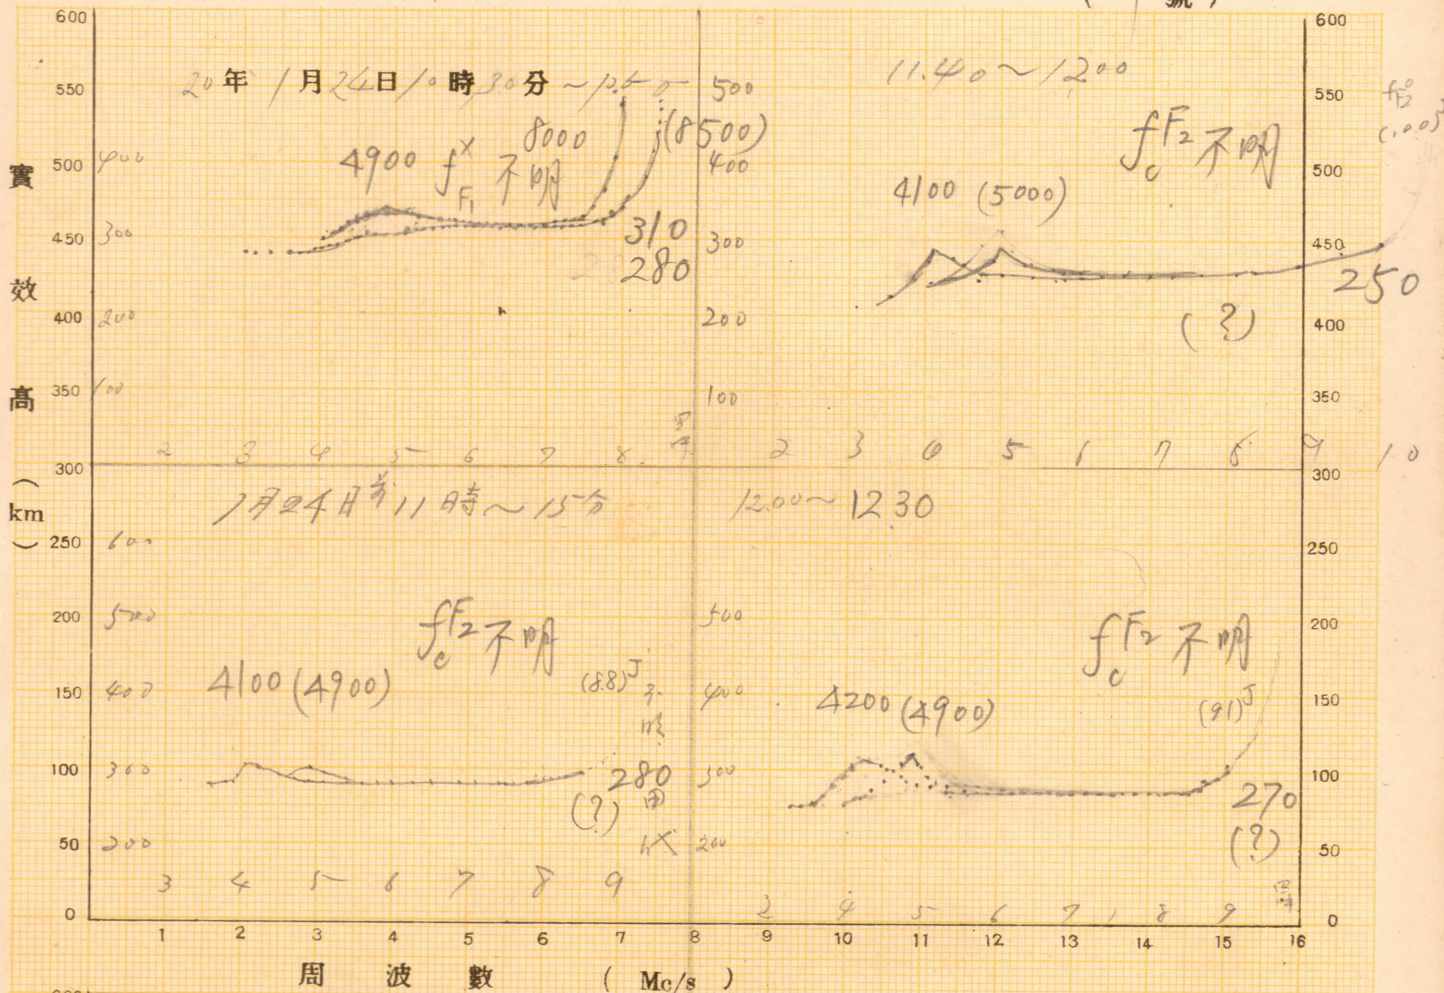 號)
600
550
500
450
400
350
300
250
200
150
100
50
0
實效高(km)
20年1月24日10時30分~10.50
400
300
200
100
4900 f F₁ x 不明
8000
(8500)
310
280
2 3 4 5 6 7 8
500
400
300
200
100
11.40~1200
fc F₂ 不明
4100 (5000)
250
(?)
2 3 4 5 6 7 8 9 10
600
550
500
450
400
350
300
250
200
150
100
50
0
1月24日 11時~15分
600
500
400
300
200
fc F₂ 不明
4100(4900)
(8.8)ᴶ
280
(?)
3 4 5 6 7 8 9
12.00~1230
500
400
300
200
fc F₂ 不明
4200(4900)
(91)ᴶ
270
(?)
4 5 6 7 8 9
1 2 3 4 5 6 7 8 9 10 11 12 13 14 15 16
周波數 (Mc/s)